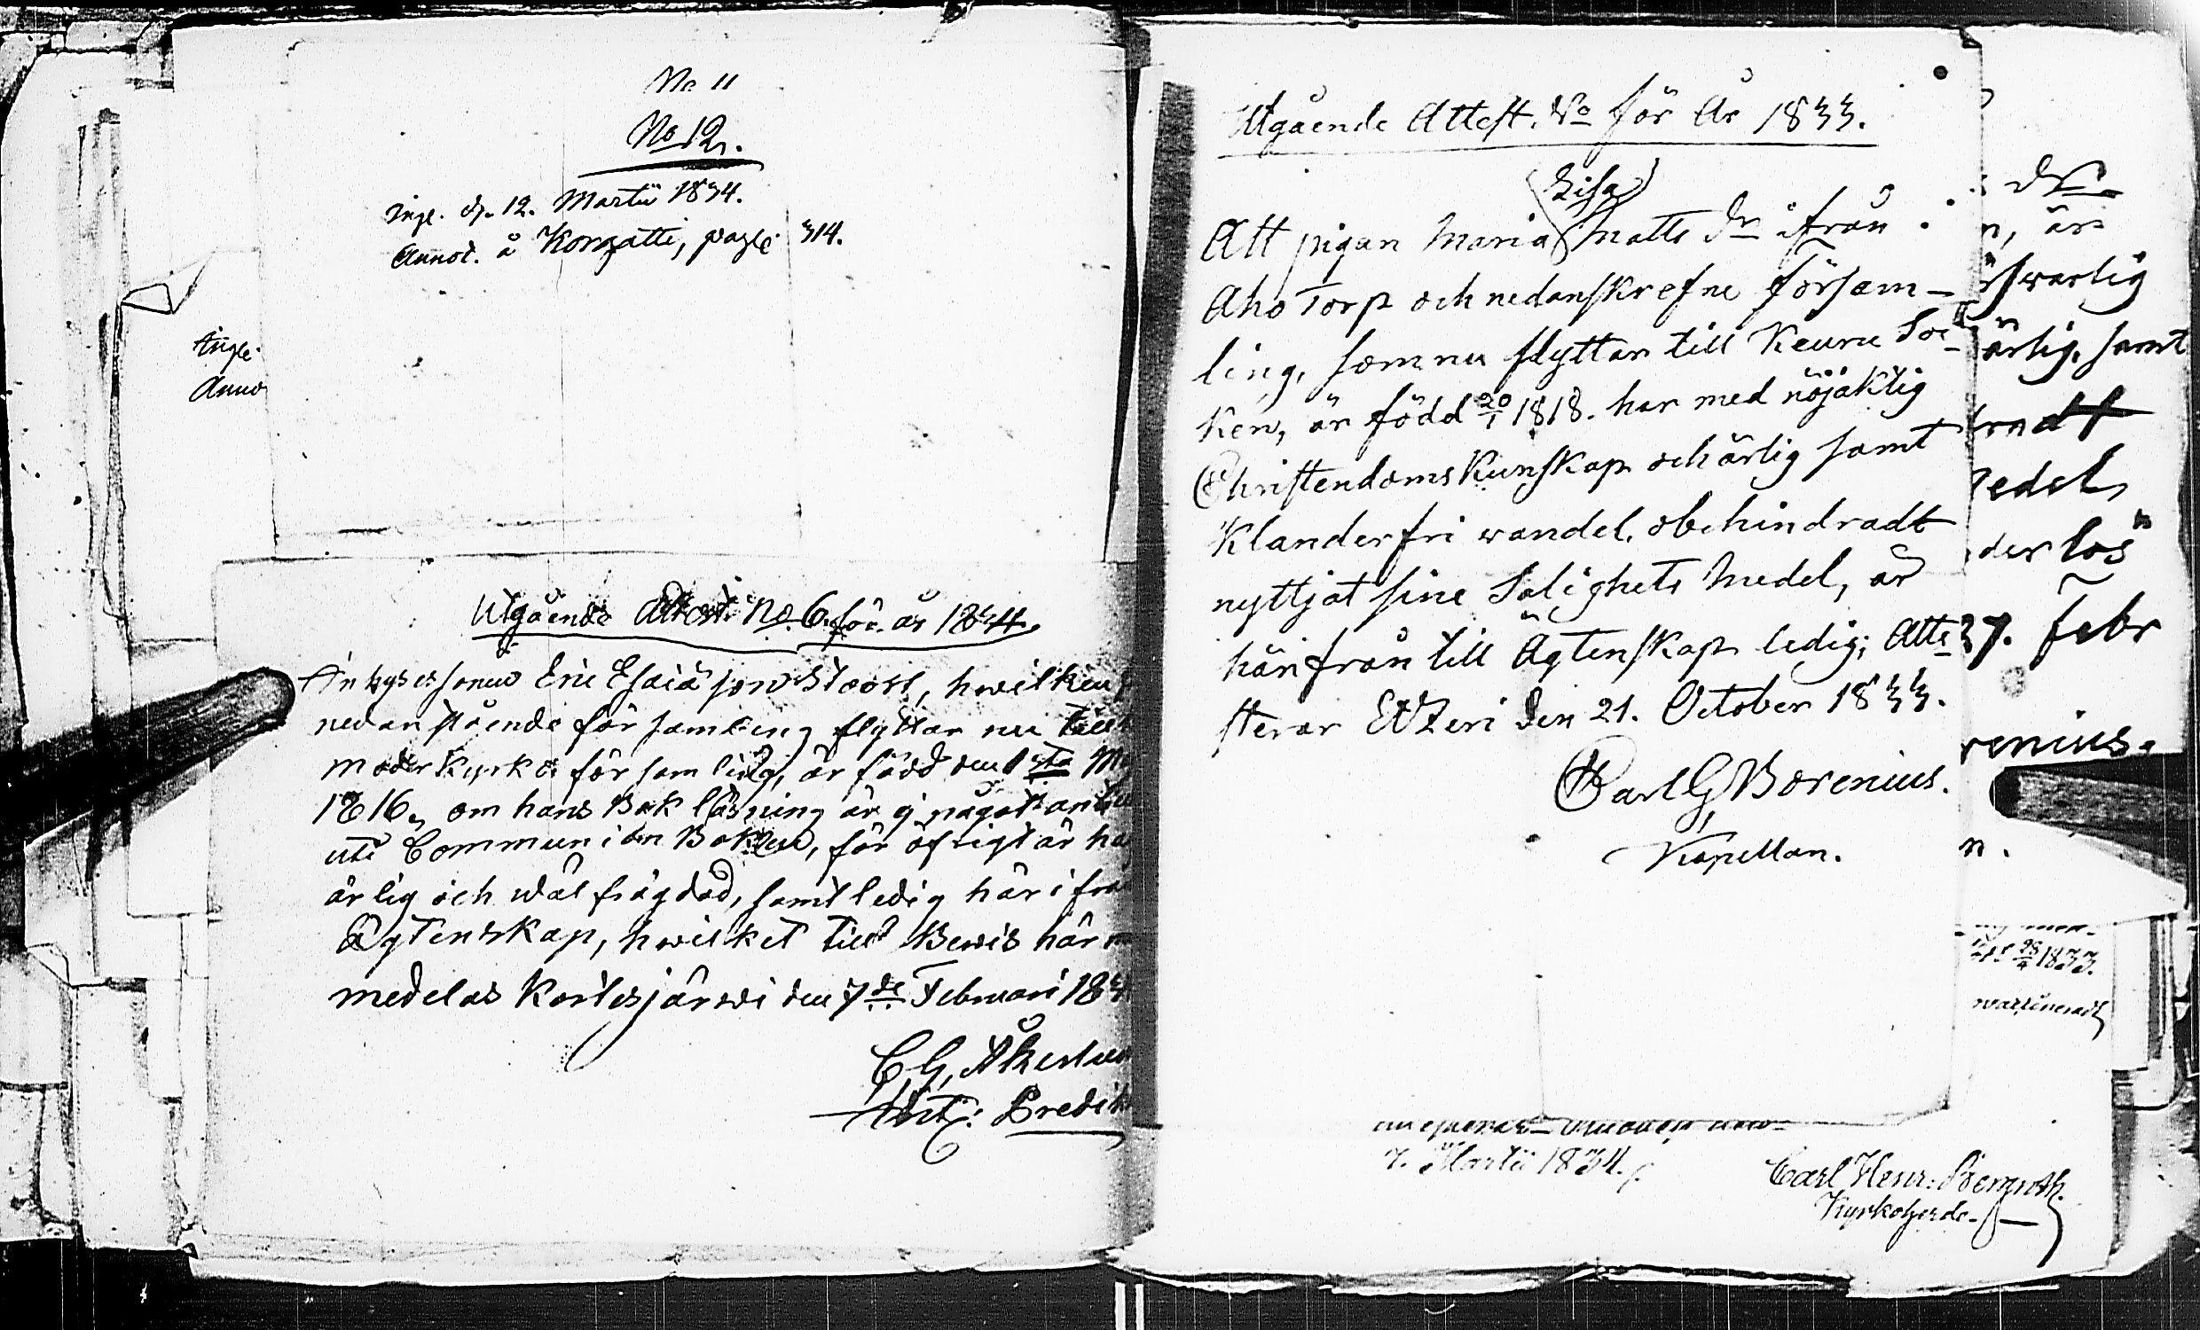 No 11
No 12.
Ingl. d. 12. Martii 1834.
Annot. å Korpatti, pagl. 314.
Ingl.
Anno
Utgående Attest No. 6. för år 1834.
Enkyses sonen Eric Esaiä son Stoor, hwilken
nedanstående församling flyttar nu till
moder Kyrko församling, är född den 1sta M
1816, om hans Bok läsning är ej något an
uti Communion Boken, för öfrigt är ha
ärlig och wäl frägdad, samt ledig här ifrå
Ägtenskap, hwilket till Bewis här m
medelas Kortesjärwi den 7de Februari 183
C. G. Åkerlun
Adjt: Predik
Utgående Attest. No för År 1833.
(Lisa)
Att pigan Maria Matts dr ifrån
Aho Torp och nedanskrefne försam-
ling, som nu flyttar till Keuru Soc-
ken, är född 20/1 1818. har med nöjaktig
Christendoms Kunskap och ärlig samt
Klanderfri wandel, obehindradt
nyttjat sine Salighets medel, är
härifrån till Ägtenskap ledig; Atte-
sterar Etzeri den 21. October 1833.
Carl G Borenius.
Kapellan.
dr
n, är
förswarlig
ärlig, samt
radt
medel,
der lös
27. Febr
renius.
n.
28/4 1833.
7. Martii 1834.
Carl Henr: Bergroth.
Kyrkoherde.